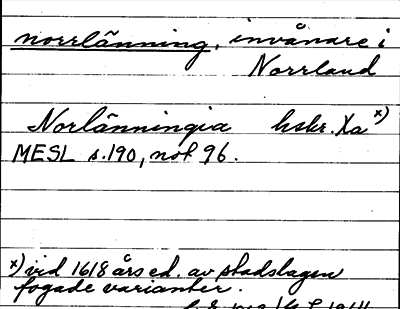 norrlänning, invånare i
Norrland
Norlänningia hskr. Xa x)
MESL s.190, not 96.
x) vid 1618 års ed. av stadslagen
fogade varianter.